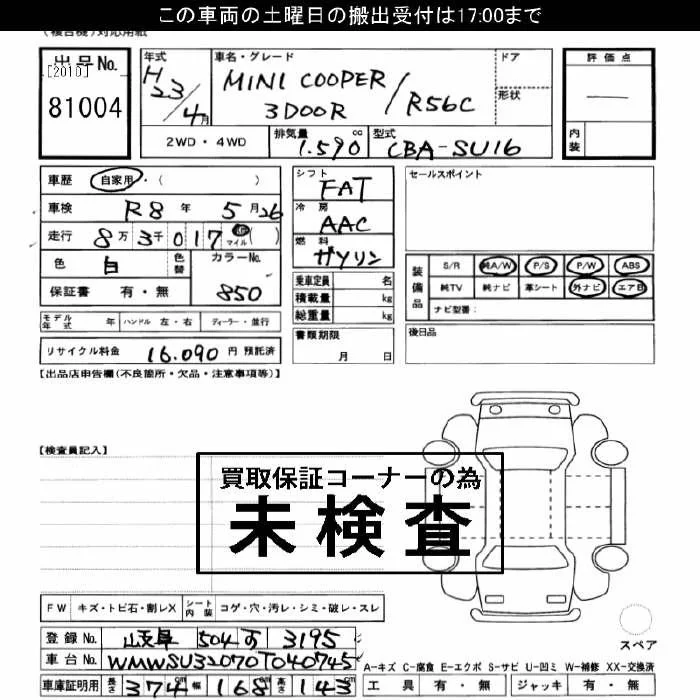 この車両の土曜日の搬出受付は17:00まで
(複合機)対応用紙
出品No.
[2010]
81004
年式
H23/4月
車名・グレード
MINI COOPER
3DOOR / R56C
ドア
形状
評価点
―
内装
2WD・4WD
排気量
1.590 cc
型式
CBA-SU16
車歴 自家用・( )
車検 R8年 5月26
走行 8万3千017 Km マイル ( )
色 白 色替 カラーNo.
850
保証書 有・無
モデル年式 年 ハンドル 左・右 ディーラー・並行
リサイクル料金 16.090 円 預託済
シフト
FAT
冷房
AAC
燃料
ガソリン
乗車定員 名
積載量 kg
総重量 kg
書類期限
月 日
セールスポイント
装備品
S/R 純A/W P/S P/W ABS
純TV 純ナビ 革シート 外ナビ エアB
ナビ型番:
後日品
【出品店申告欄(不良箇所・欠品・注意事項等)】
【検査員記入】
買取保証コーナーの為
未検査
FW キズ・トビ石・割レX シート内装 コゲ・穴・汚レ・シミ・破レ・スレ
スペア
登録No. 岐阜 504 す 3195
車台No. WMWSU32070T040745
A-キズ C-腐食 E-エクボ S-サビ U-凹ミ W-補修 XX-交換済
車庫証明用 長さ 374 cm 幅 168 cm 高さ 143 cm
工具 有・無 ジャッキ 有・無